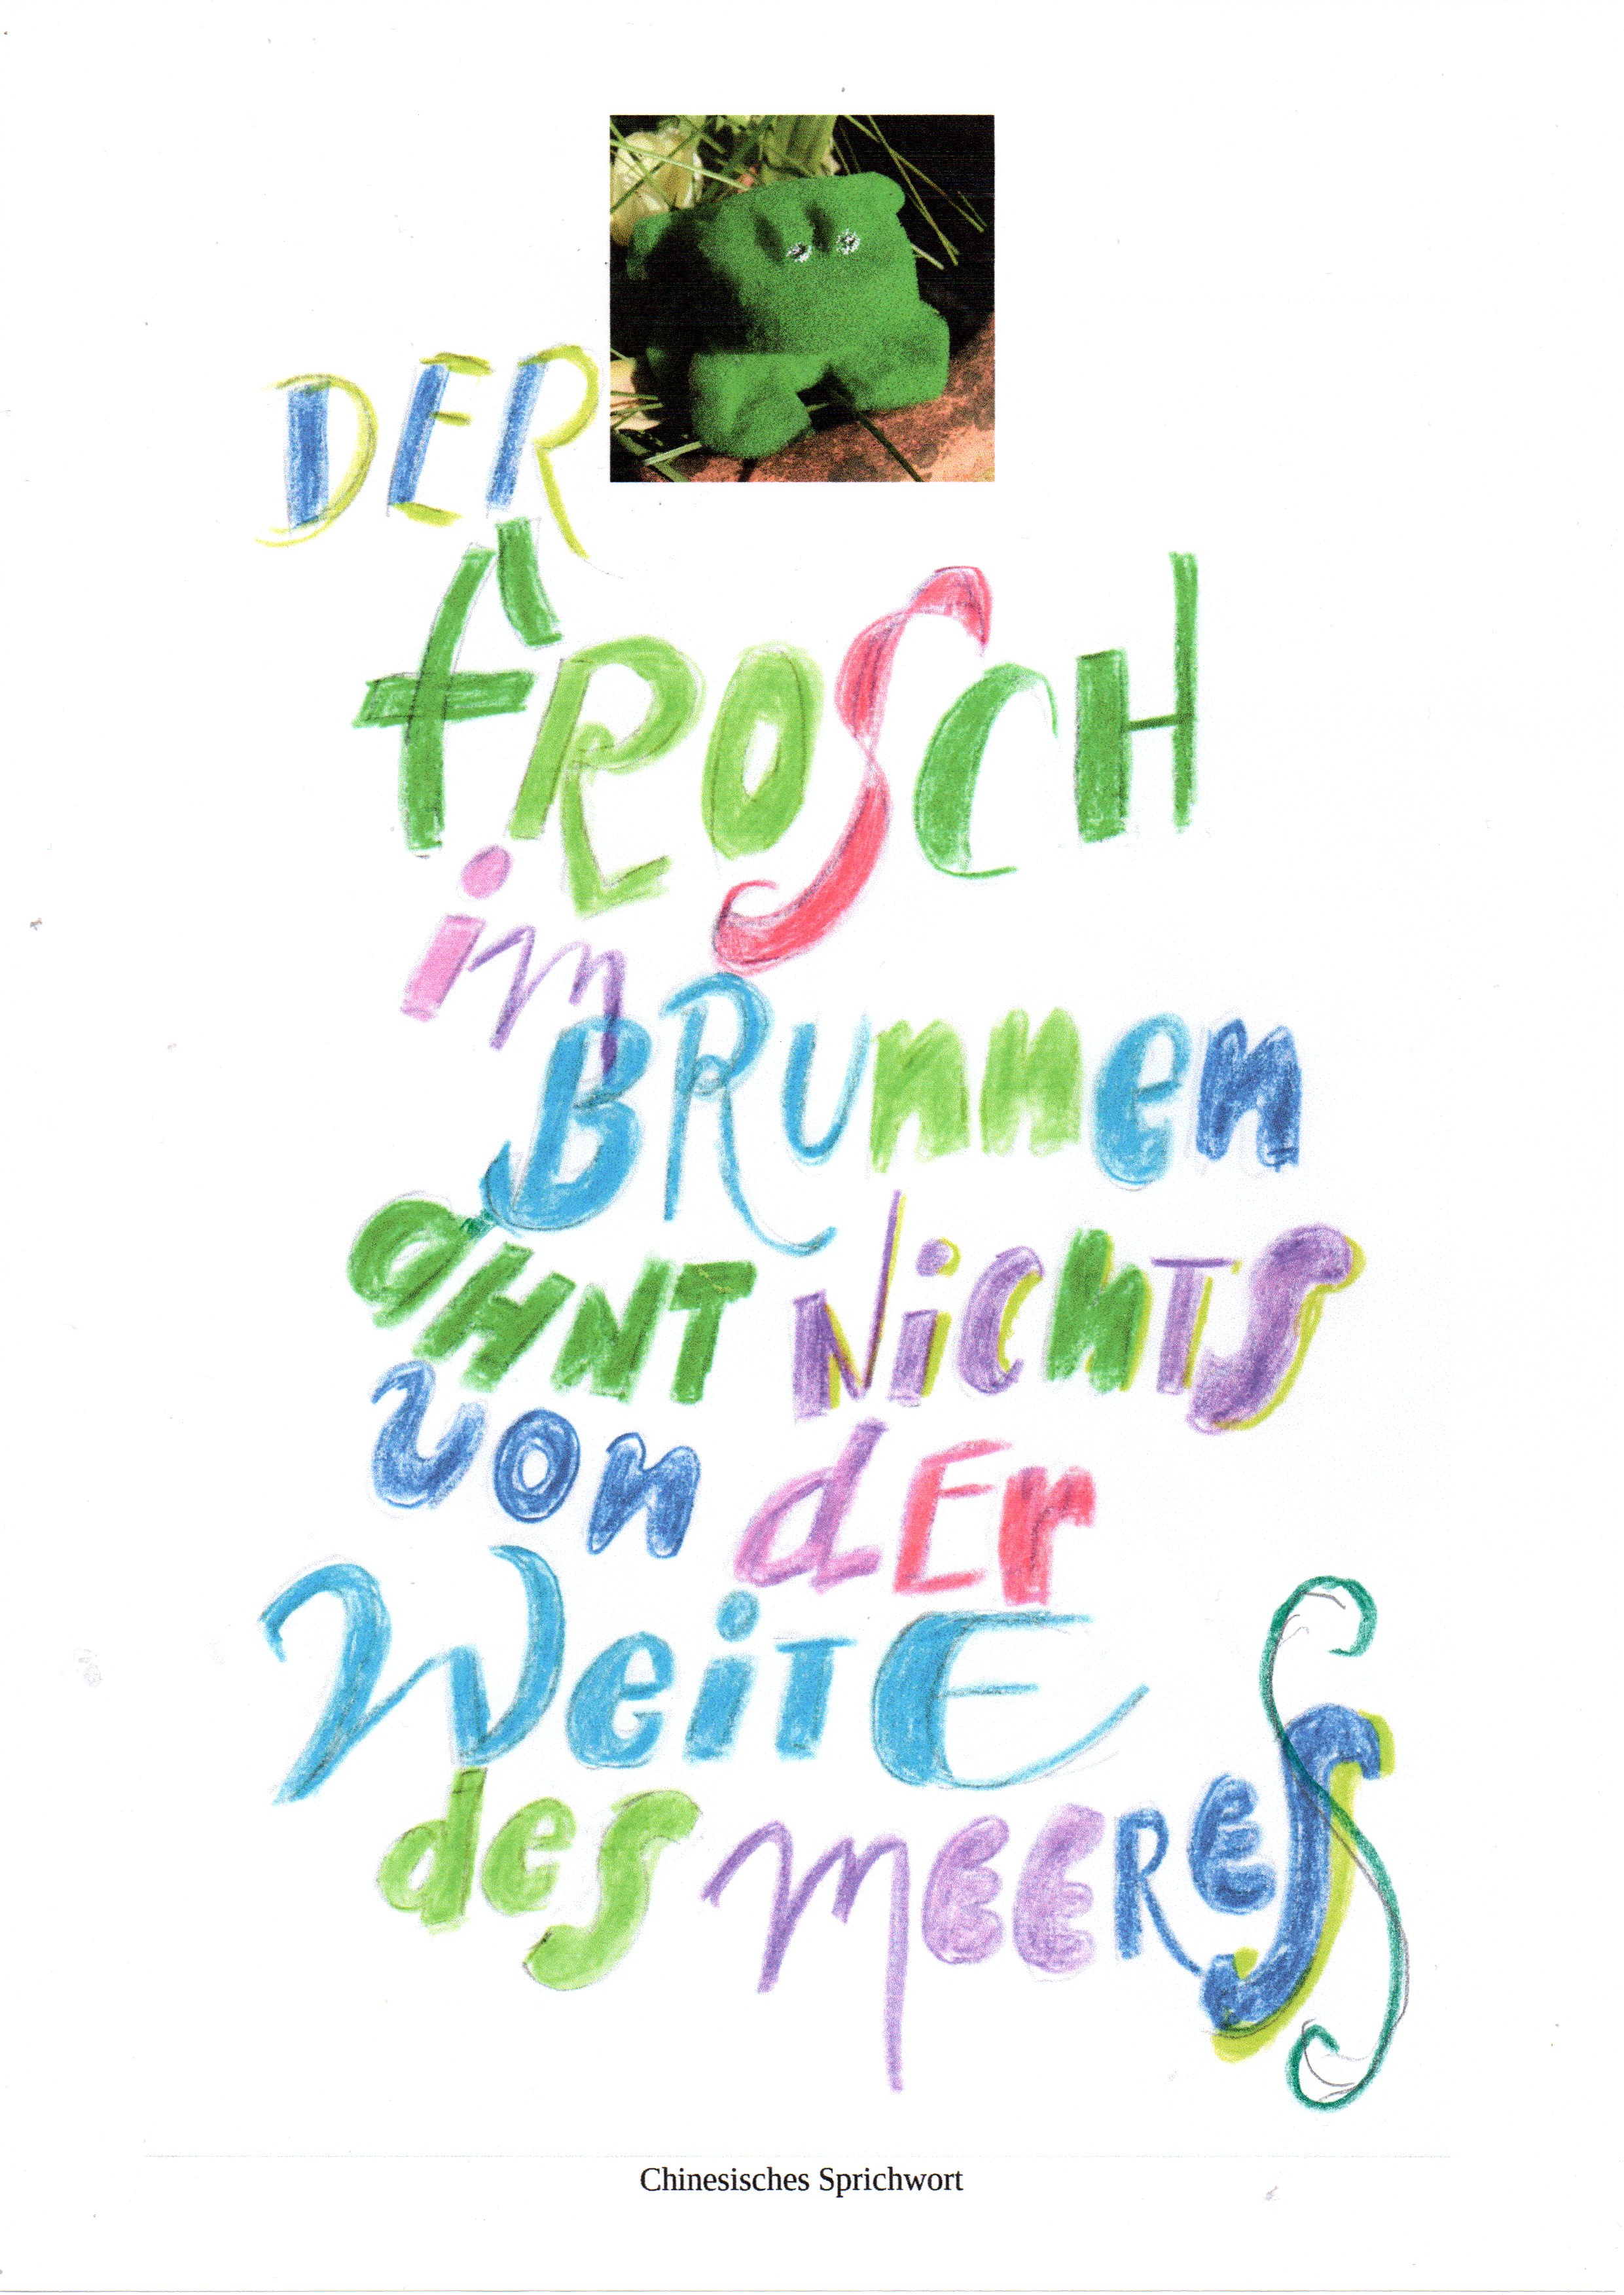 DER
fROSCH
im
BRUnnen
aHNT NichTS
von dEr
WeiTE
des mEEReS
Chinesisches Sprichwort